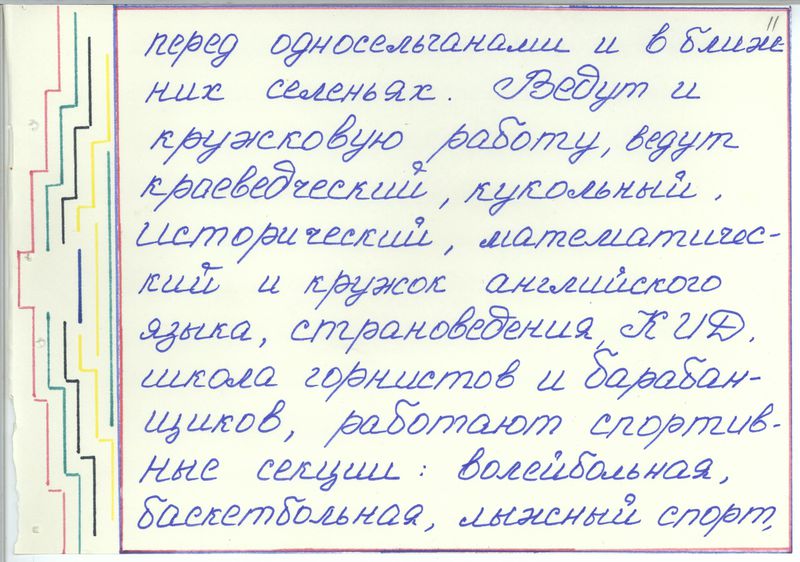 11
перед односельчанами и в ближ-
них селеньях. Ведут и
кружковую работу, ведут
краеведческий, кукольный,
исторический, математичес-
кий и кружок английского
языка, страноведения, КИД.
школа горнистов и барабан-
щиков, работают спортив-
ные секции: волейбольная,
баскетбольная, лыжный спорт,